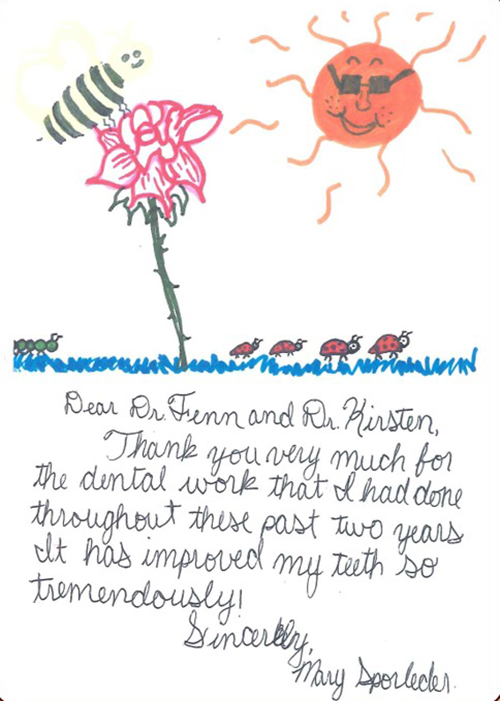 Dear Dr. Fenn and Dr. Kirsten,
Thank you very much for
the dental work that I had done
throughout these past two years
It has improved my teeth so
tremendously!
Sincerely,
Mary Sporleder.